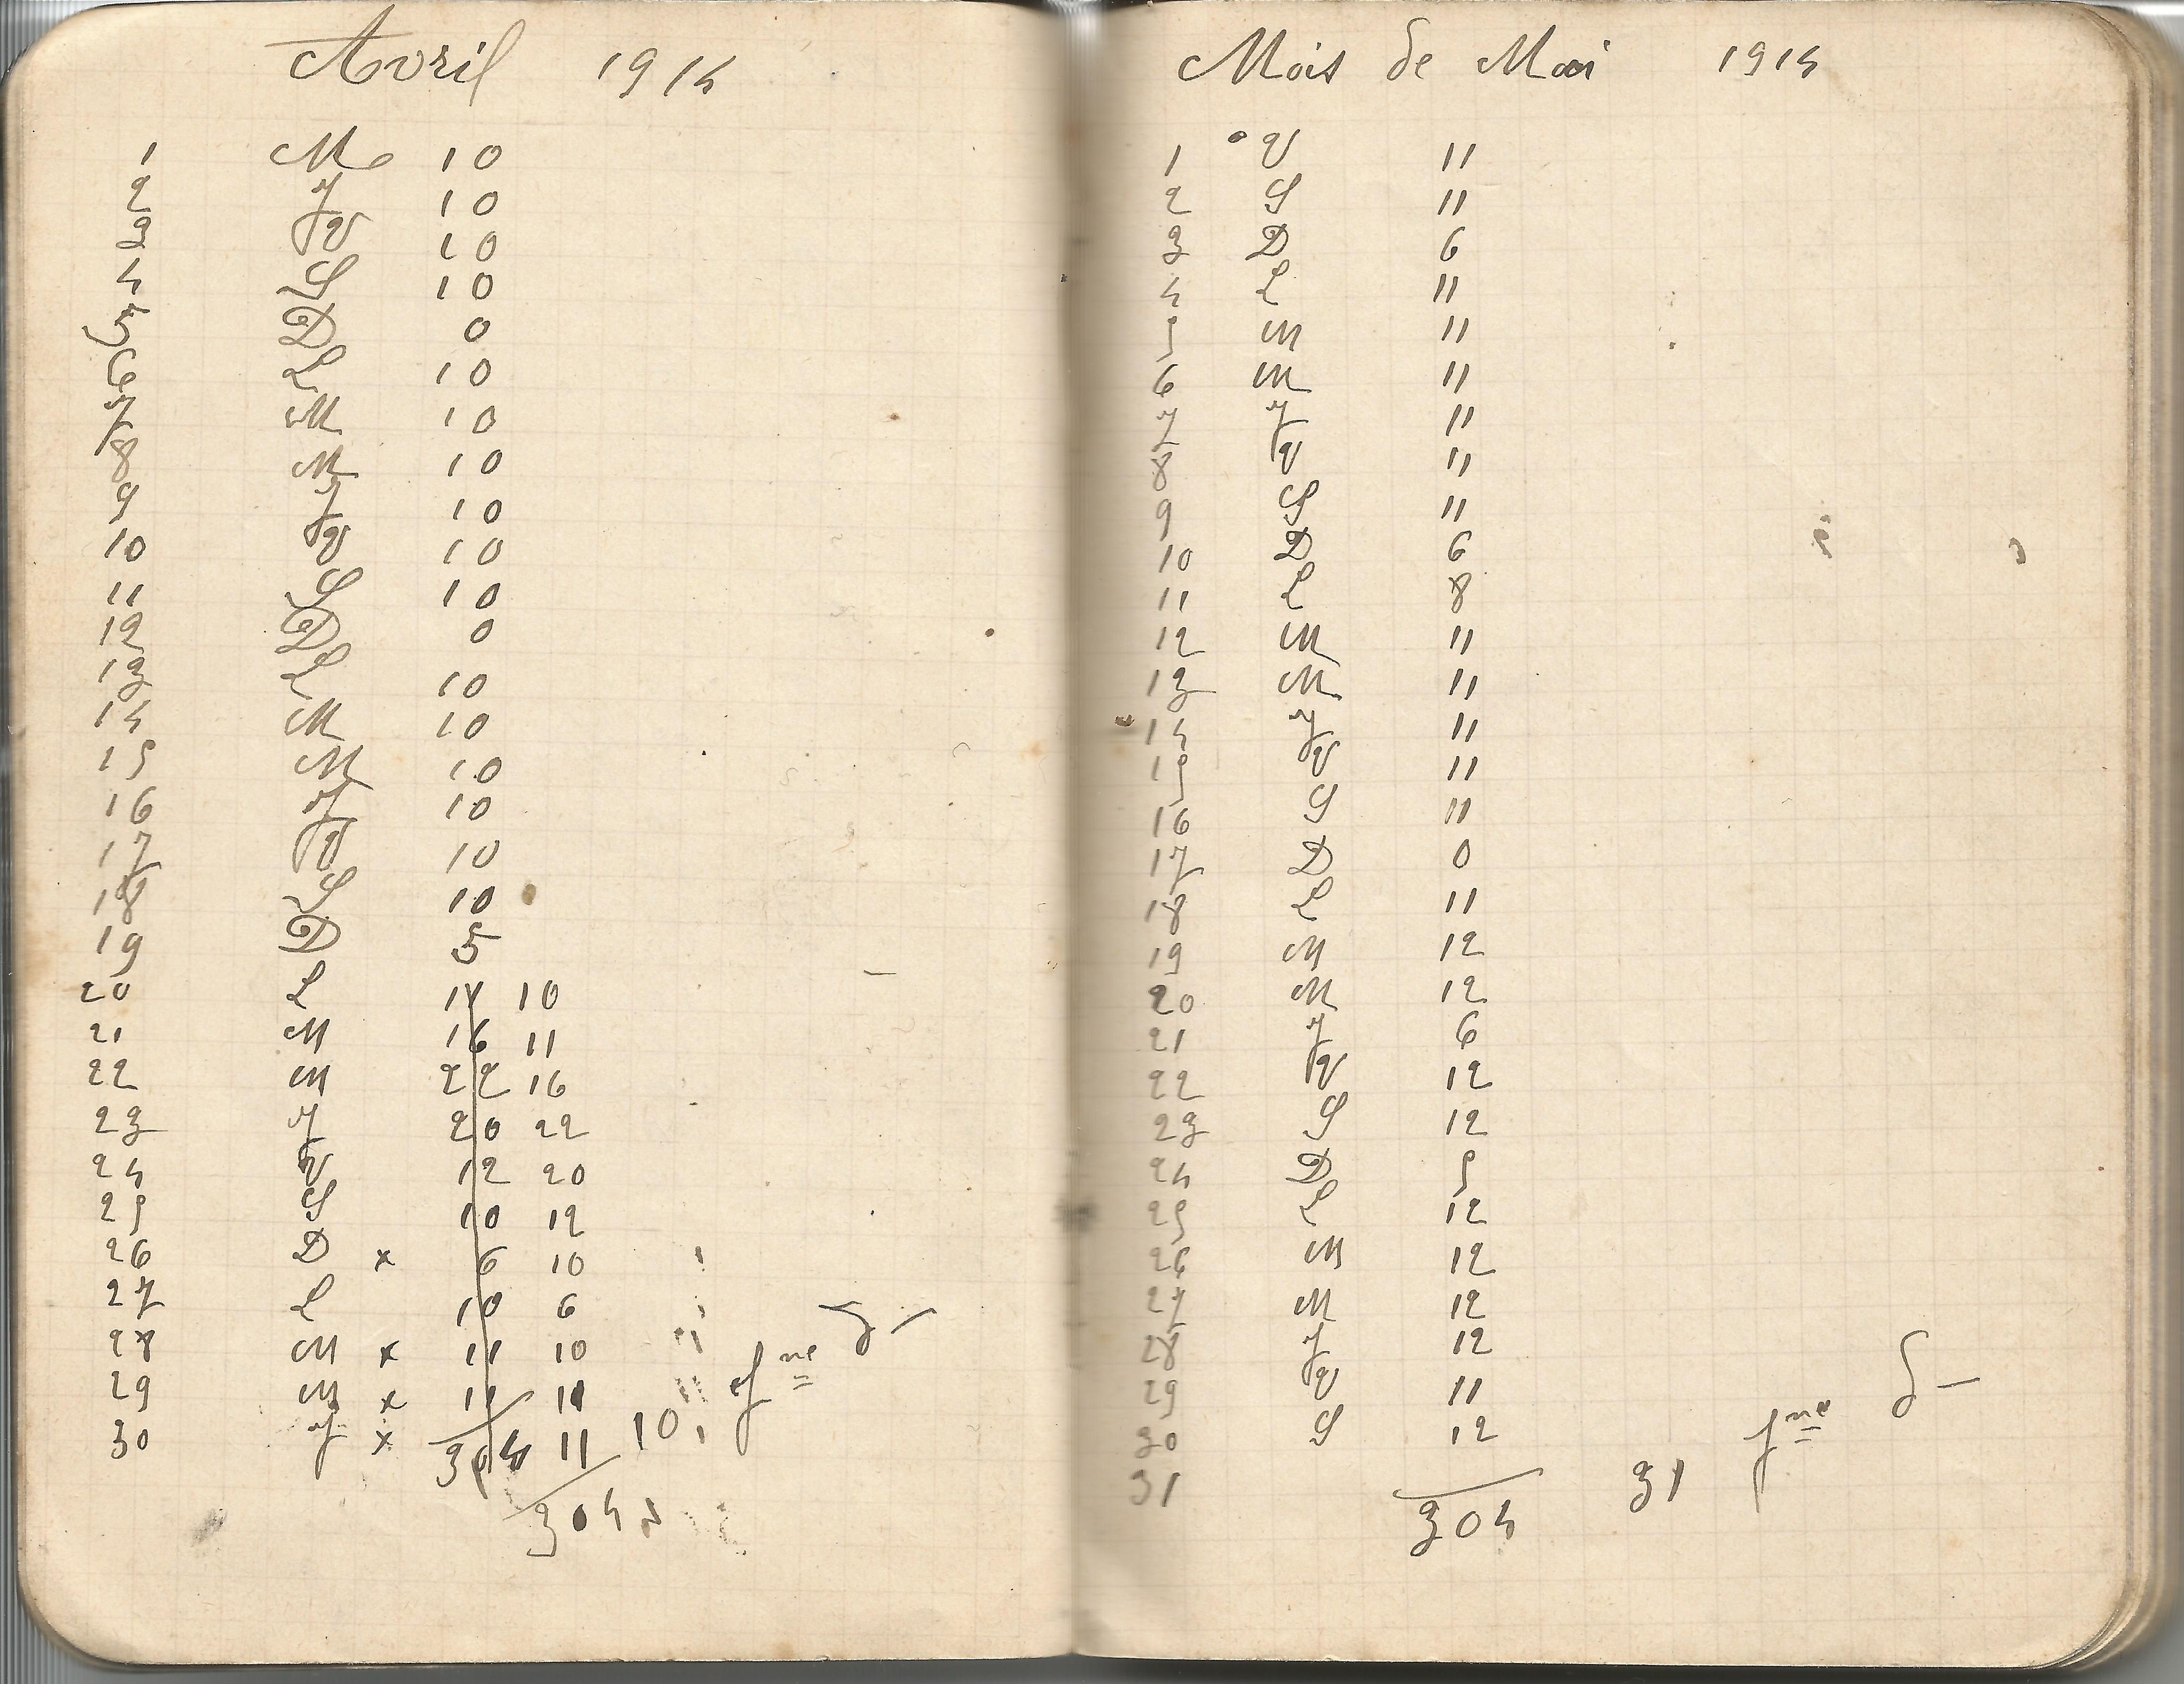 Avril 1914
1 Me 10
2 J 10
3 V 10
4 S 10
5 D 0
6 L 10
7 M 10
8 M 10
9 J 10
10 V 10
11 S 10
12 D 0
13 L 10
14 M 10
15 M 10
16 J 10
17 V 10
18 S 10
19 D 5
20 L 11 10
21 M 16 11
22 M 22 16
23 J 20 22
24 V 12 20
25 S 10 12
26 D x 6 10
27 L 10 6
28 M x 11 10
29 M x 11 11
30 J x 304 11 10 fne
304
Mois de Mai 1914
1 V 11
2 S 11
3 D 6
4 L 11
5 M 11
6 M 11
7 J 11
8 V 11
9 S 11
10 D 6
11 L 8
12 M 11
13 M 11
14 J 11
15 V 11
16 S 11
17 D 0
18 L 11
19 M 12
20 M 12
21 J 6
22 V 12
23 S 12
24 D 5
25 L 12
26 M 12
27 M 12
28 J 12
29 V 11
30 S 12
31 31 fne
304